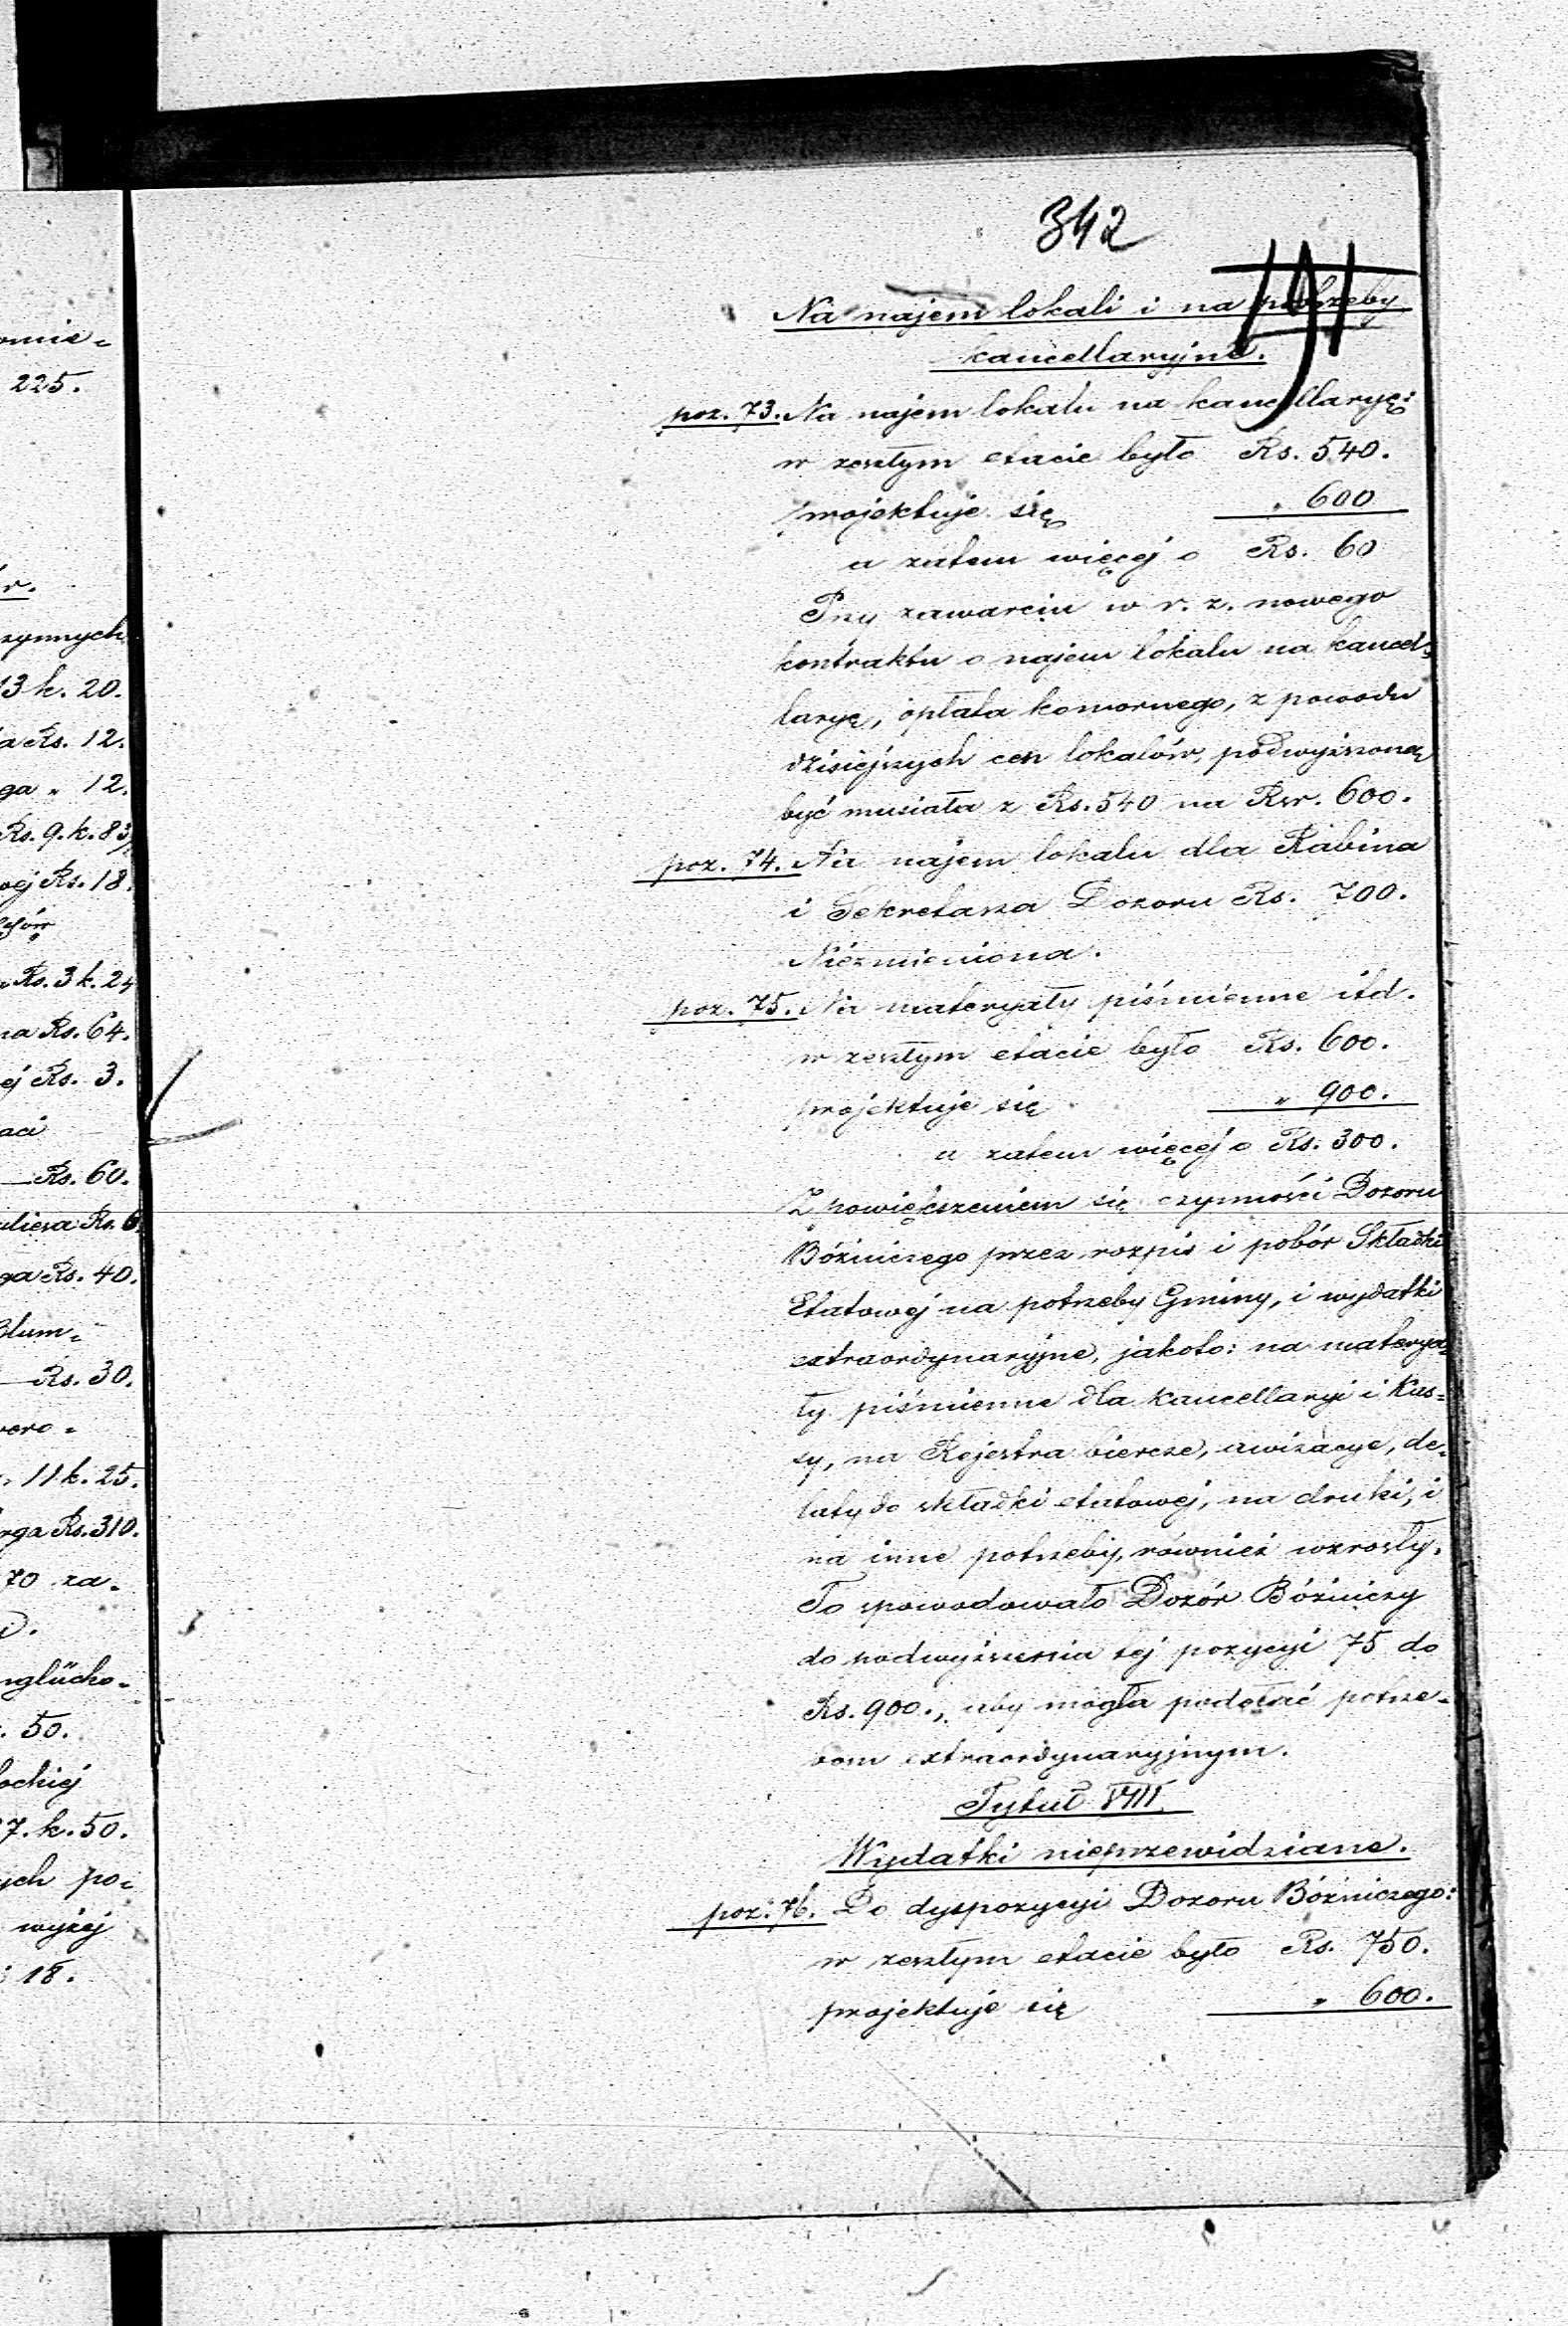 omie-
225.
r.
zynnych
13 k. 20.
a Rs. 12.
ga „ 12.
Rs. 9. k. 83
wej Rs. 18.
Rs. 3 k. 24
na Rs. 64.
ej Rs. 3.
aci
Rs. 60.
Rs. 6.
ga Rs. 40.
Blum-
Rs. 30.
woro-
11 k. 25.
rga Rs. 310.
70 za-
nglücko-
. 50.
lockiej
7. k. 50.
ych po-
wyżej
18.
342
191
Na najem lokali i na potrzeby
kancellaryjne.
poz. 73. Na najem lokalu na kancellaryę:
w zeszłym etacie było Rs. 540.
projektuje się „ 600
a zatem więcej o Rs. 60
Przy zawarciu w r. z. nowego
kontraktu o najem lokalu na kancel-
laryę, opłata komornego, z powodu
dzisiejszych cen lokalów, podwyższoną
być musiała z Rs. 540 na Rsr. 600.
poz. 74. Na najem lokalu dla Rabina
i Sekretarza Dozoru Rs. 700.
Niezmieniona.
poz. 75. Na materyały piśmienne itd.
w zeszłym etacie było Rs. 600.
projektuje się „ 900.
a zatem więcej o Rs. 300.
Z powiększeniem się czynności Dozoru
Bóżniczego przez rozpis i pobór Składki
Etatowej na potrzeby Gminy, i wydatki
extraordynaryjne, jakoto: na materya-
ły piśmienne dla kancellaryi i Kas-
sy, na Rejestra biercze, awizacye, de-
laty do składki etatowej, na druki, i
na inne potrzeby, również wzrosły.
To spowodowało Dozór Bóżniczy
do podwyższenia tej pozycyi 75 do
Rs. 900., aby mogła podołać potrze-
bom extraordynaryjnym.
Tytuł VIII.
Wydatki nieprzewidziane.
poz. 76. Do dyspozycyi Dozoru Bóżniczego:
w zeszłym etacie było Rs. 750.
projektuje się „ 600.